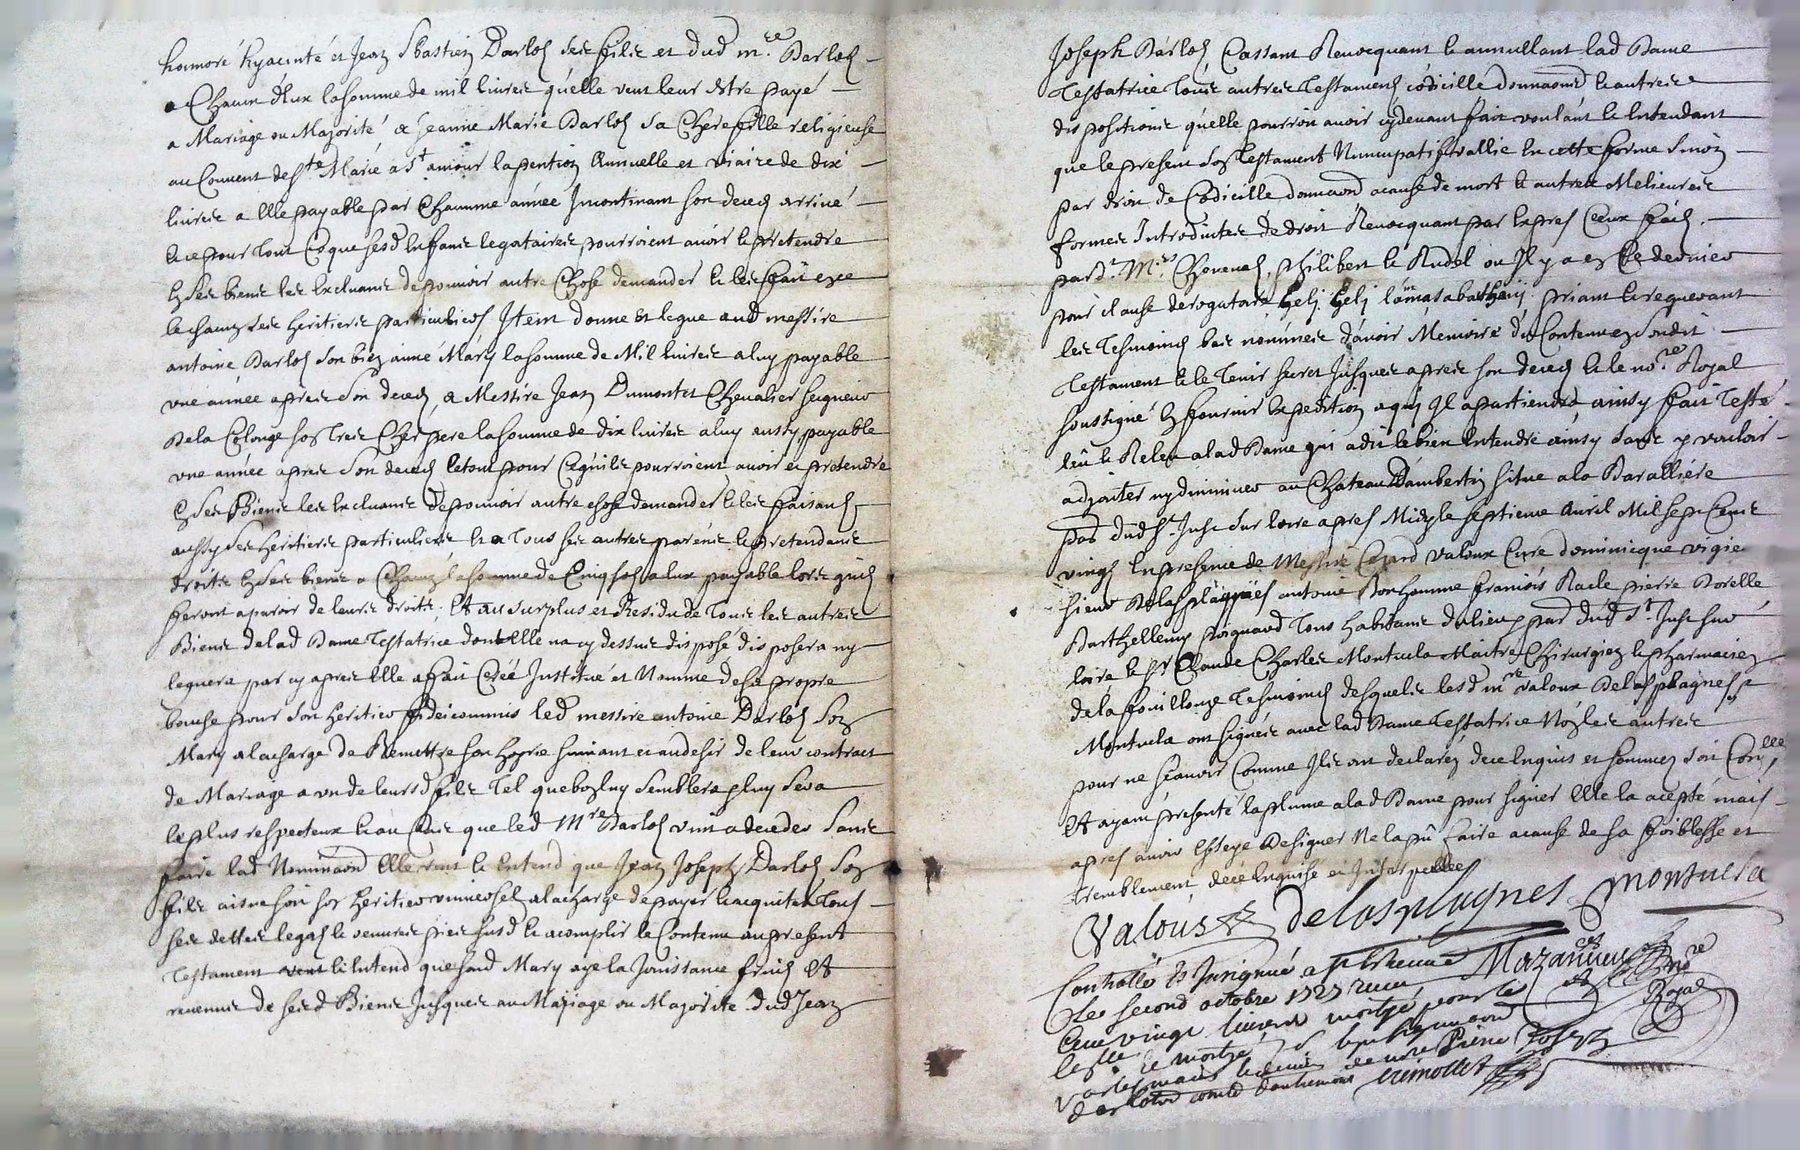 honnoré hyacinte et Jean Sbastien Darlos ses fils et dud mre Darlos
a Chacun deux la somme de mil livres qu'elle veut leur estre payé
a Mariage ou Majorité a Jeanne Marie Darlos sa Chere fille religieuse
au Couvent de Ste Marie a St amour la pention Annuelle et viaire de dix
livres a Elle payable par Chacunne année Incontinant son deced arrivé
et ce pour tout Ce que sesd Enfans legataires pourroient avoir et pretendre
En ses biens les Excluant de pouvoir autre Chose demander et les fait
ses heritiers particuliers Item donne et legue aud messire
antoine Darlos son bien aimé Mary la somme de Mil livres a luy payable
une année apres son deced, a Messire Jean Dumontet Chevalier seigneur
De la Colonge son Tres Cher pere la somme de dix livres a luy aussy payable
une année apres son deced le tout pour Ce qu'ils pourroient avoir et pretendre
En ses Biens les Excluant de pouvoir autre chose demander et les faisant
aussy ses heritiers particuliers Et a Tous ses autres parens et pretendants
droits En ses biens a Chacun la somme de Cinq sols a eux payable lors qu'ils
feront aparoir de leurs droits; Et au surplus et Residu de Tous les autres
Biens de lad Dame Testatrice dont Elle na cy dessus disposé disposera ny
leguera par cy apres Elle a fait Créé Institué et Nommé de sa propre
bouche pour son heritier fideicommis led messire antoine Darlos son
Mary a la charge de Remettre son hoyrie suivant et au desir de leur contract
de Mariage a un de leursd fils Tel que bon luy semblera et luy sera
le plus respecteux et au Cas que led Mre Darlos vint a deceder sans
faire lad Nominaon Elle veut et Entend que Jean Joseph Darlos son
fils aisne soit son heritier universel a la charge de payer et acquiter Tous
ses dettes legats et oeuvres pies susd et acomplir le Contenu au present
Testament veut et Entend que sond Mary aye la Jouissance fruits Et
revenus de sesd Biens Jusques au Mariage ou Majorité dud Jean
Joseph Darlos, Cassant Revocquant et annullant lad Dame
Testatrice Tous autres Testaments codicille donnaons et autres
dispositions qu'elle pourroit avoir cy devant fait voulant et Entendant
que le present son Testament Nuncupatif vallie En cette forme Sinon
par droit de Codicille donnaon a cause de mort et autres Melieures
formes Introduites De droit Revocquant par Expres Ceux
par d. Mres Chovenet, Philibert et Rudel ou Il y a en Ce dernier
pour clause derogatoire hely hely lamasabathany priant et requerant
les Tesmoins bas nommés d'avoir Memoire du Contenu en Sondit
Testament et le Tenir secret Jusques apres son deced et le nore Royal
soussigné En fournir Expedition a qui Il apartiendra, ainsy fait Testé
leu et Releu a lad Dame qui a dit le bien Entendre ainsy sans y vouloir
adjoûter ny diminuer au Chateau Dambertin situé a la Baralliere
par dud St. Just sur loire apres Midy le septieme Avril Mil sept Cent
vingt En presence de Messire Valoux Curé dominicque vigier
sieur Delasplagnes antoine Bonhomme francois Racle pierre Borelle
Barthellemy Poignard Tous habitans du lieu par dud St. Just sur
loire et Sr Claude Charles Montuela Maitre Chirurgien et pharmacien
de la fouillouze Tesmoins desquels lesd mre valoux Delasplagnes et
Montuela ont signés avec lad Dame Testatrice Non les autres
pour ne scavoir Comme Ils ont declarés de ce Enquis et sommez
Et ayant presenté la plume a lad Dame pour signer Elle la acepté mais
apres avoir Essayé De signer Ne la pû faire a cause de sa foiblesse et
tremblement de ce Enquise et Interpellée
Valoüs delasplagnes montuela
Controllé Et Insinué a St Etienne Mazenieu nore
Le second octobre 1727 receu Royal
Cent vingt livres moitié pour le